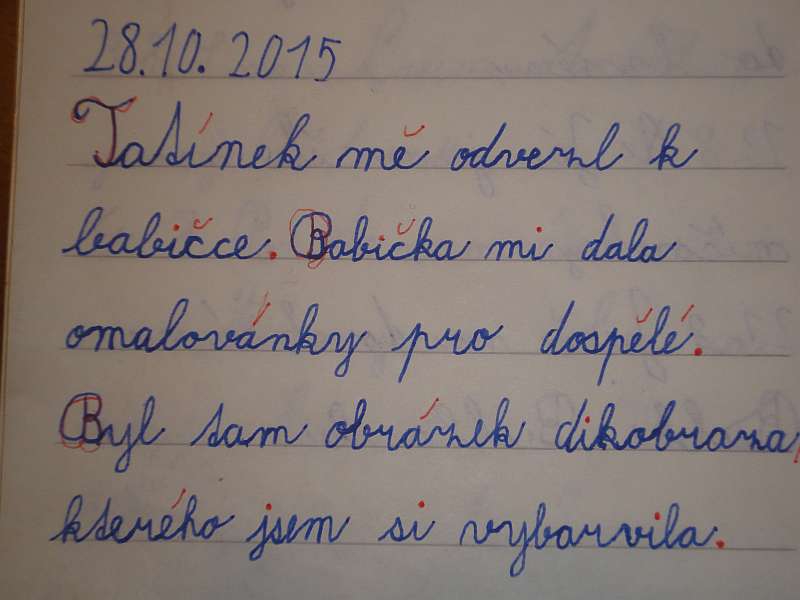 28.10. 2015
Tatínek mě odvezl k
babičce. Babička mi dala
omalovánky pro dospělé.
Byl tam obrázek dikobraza,
kterého jsem si vybarvila.